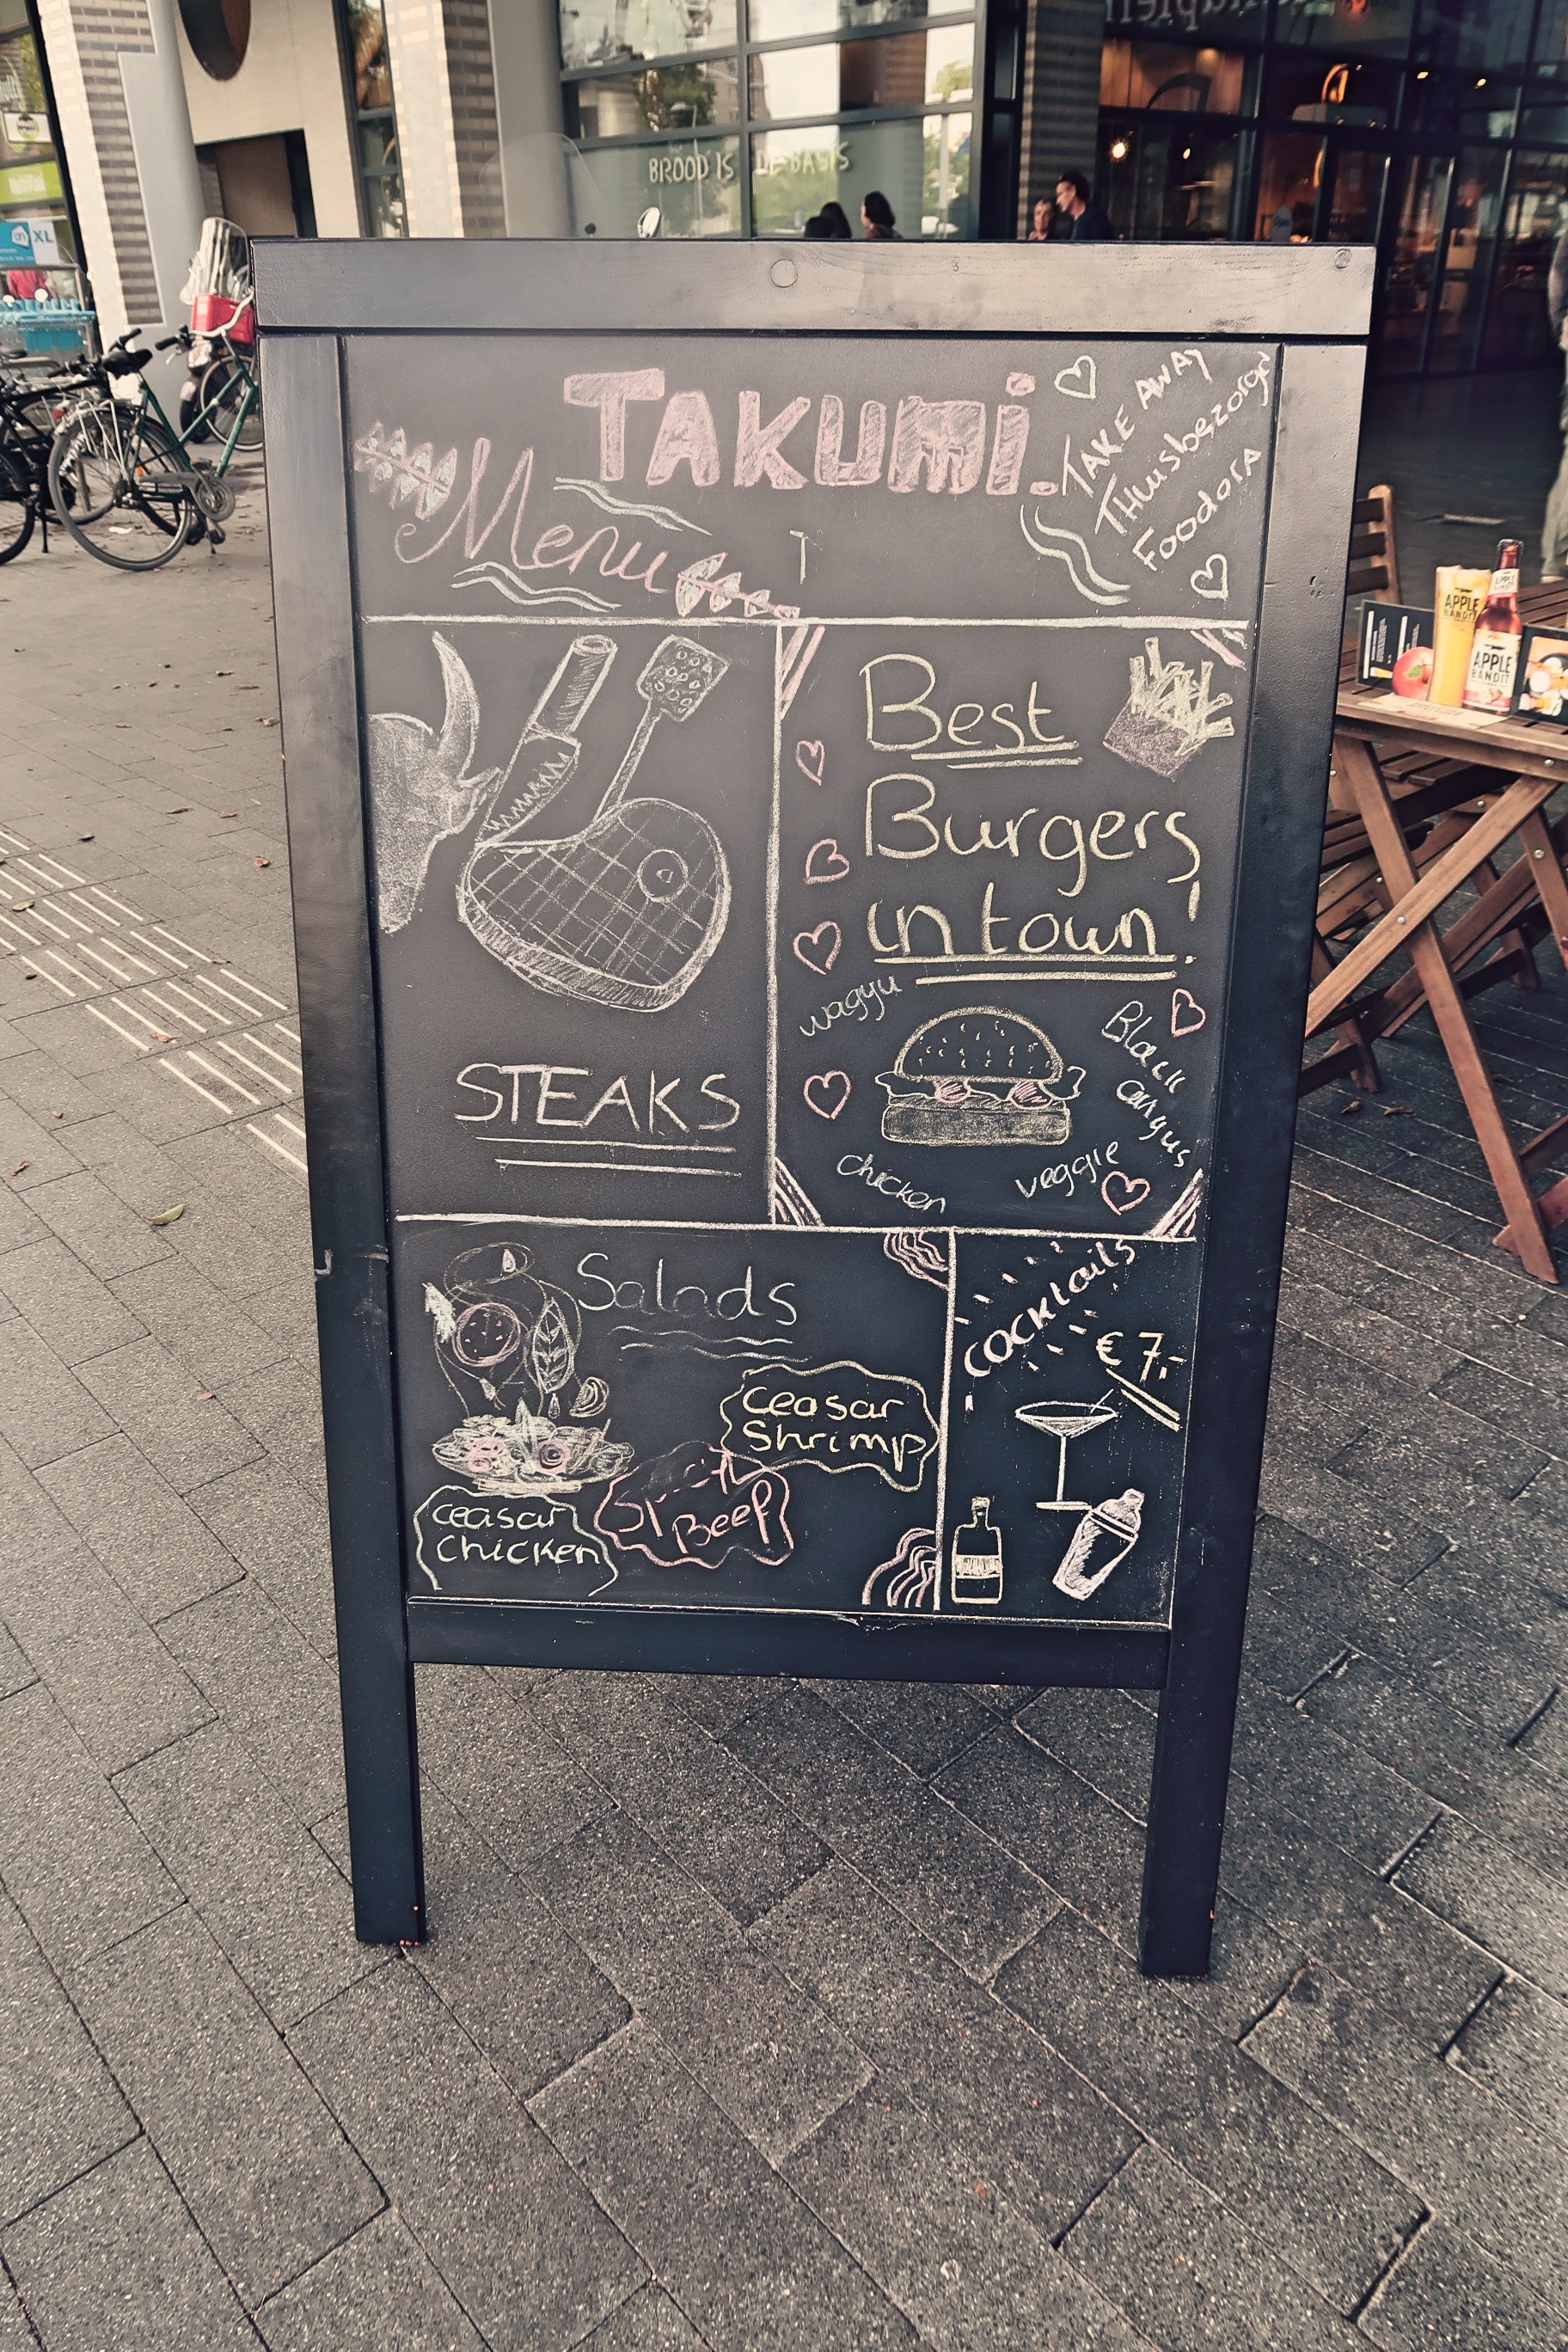 BROOD IS DE BASIS
XL
TAKUMi.
Menu
TAKE AWAY
Thuisbezorgd
Foodora
Best
Burgers
in town!
wagyu
Black
angus
chicken
veggie
STEAKS
Salads
ceasar
Shrimp
ceasar
chicken
Beef
cocktails
€ 7,-
APPLE
BANDIT
APPLE
BANDIT